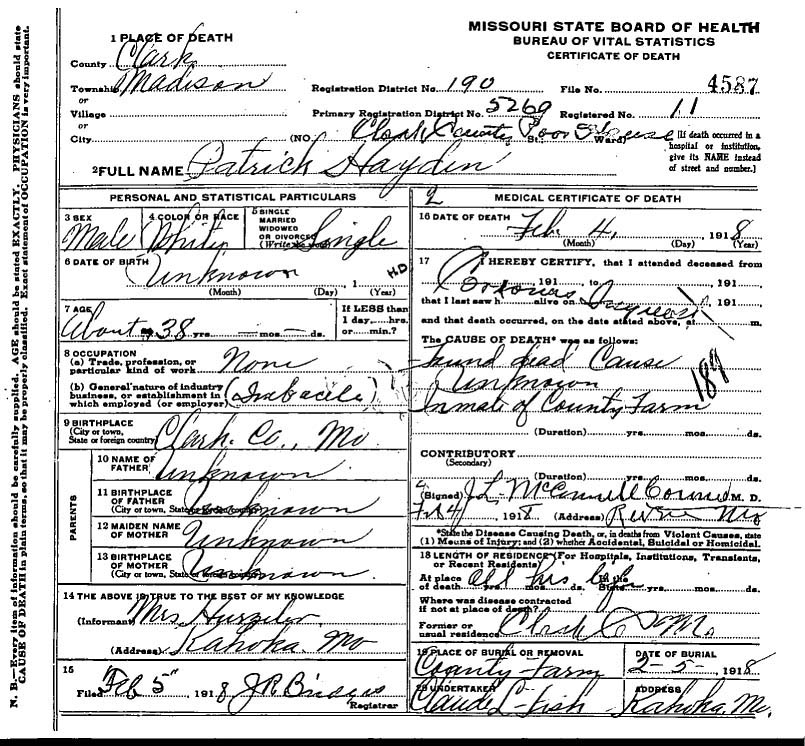 MISSOURI STATE BOARD OF HEALTH
BUREAU OF VITAL STATISTICS
CERTIFICATE OF DEATH
1 PLACE OF DEATH
County Clark
Township Madison
or
Village
or
City
Registration District No. 190
File No. 4587
Primary Registration District No. 5269
Registered No. 11
(NO. Clark County Poor House St.; Ward)
[If death occurred in a
hospital or institution,
give its NAME instead
of street and number.]
2 FULL NAME Patrick Hayden
PERSONAL AND STATISTICAL PARTICULARS
3 SEX Male
4 COLOR OR RACE White
5 SINGLE
MARRIED
WIDOWED
OR DIVORCED
(Write the word) Single
6 DATE OF BIRTH Unknown , 1
(Month) (Day) (Year)
H.D
7 AGE
About 38 yrs. mos. ds.
If LESS than
1 day, hrs.
or min.?
8 OCCUPATION
(a) Trade, profession, or
particular kind of work None
(b) General nature of industry
business, or establishment in
which employed (or employer)
9 BIRTHPLACE
(City or town,
State or foreign country) Clark Co., Mo
PARENTS
10 NAME OF
FATHER Unknown
11 BIRTHPLACE
OF FATHER
(City or town, State or foreign country) Unknown
12 MAIDEN NAME
OF MOTHER Unknown
13 BIRTHPLACE
OF MOTHER
(City or town, State or foreign country) Unknown
14 THE ABOVE IS TRUE TO THE BEST OF MY KNOWLEDGE
(Informant) Mrs
(Address) Kahoka Mo
15
Filed Feb 5" , 1918 J R Bridges
Registrar
2 MEDICAL CERTIFICATE OF DEATH
16 DATE OF DEATH Feb 4, 1918
(Month) (Day) (Year)
17 I HEREBY CERTIFY, that I attended deceased from
, 191 to , 191
that I last saw h alive on , 191
and that death occurred, on the date stated above, at m.
The CAUSE OF DEATH* was as follows:
Found dead Cause
Unknown
Inmate of County Farm
189
(Duration) yrs. mos. ds.
CONTRIBUTORY
(Secondary)
(Duration) yrs. mos. ds.
(Signed) J L McConnell M. D.
Feb 4 , 1918 (Address) Mo
*State the Disease Causing Death, or, in deaths from Violent Causes, state
(1) Means of Injury; and (2) whether Accidental, Suicidal or Homicidal.
18 LENGTH OF RESIDENCE (For Hospitals, Institutions, Transients,
or Recent Residents)
At place
of death All his life yrs. mos. ds. In the State yrs. mos. ds.
Where was disease contracted
if not at place of death?
Former or
usual residence Clark Co Mo
19 PLACE OF BURIAL OR REMOVAL
County Farm
DATE OF BURIAL
2-5- 1918
20 UNDERTAKER
Claude L Fish
ADDRESS
Kahoka, Mo.
N. B.—Every item of information should be carefully supplied. AGE should be stated EXACTLY. PHYSICIANS should state
CAUSE OF DEATH in plain terms, so that it may be properly classified. Exact statement of OCCUPATION is very important.